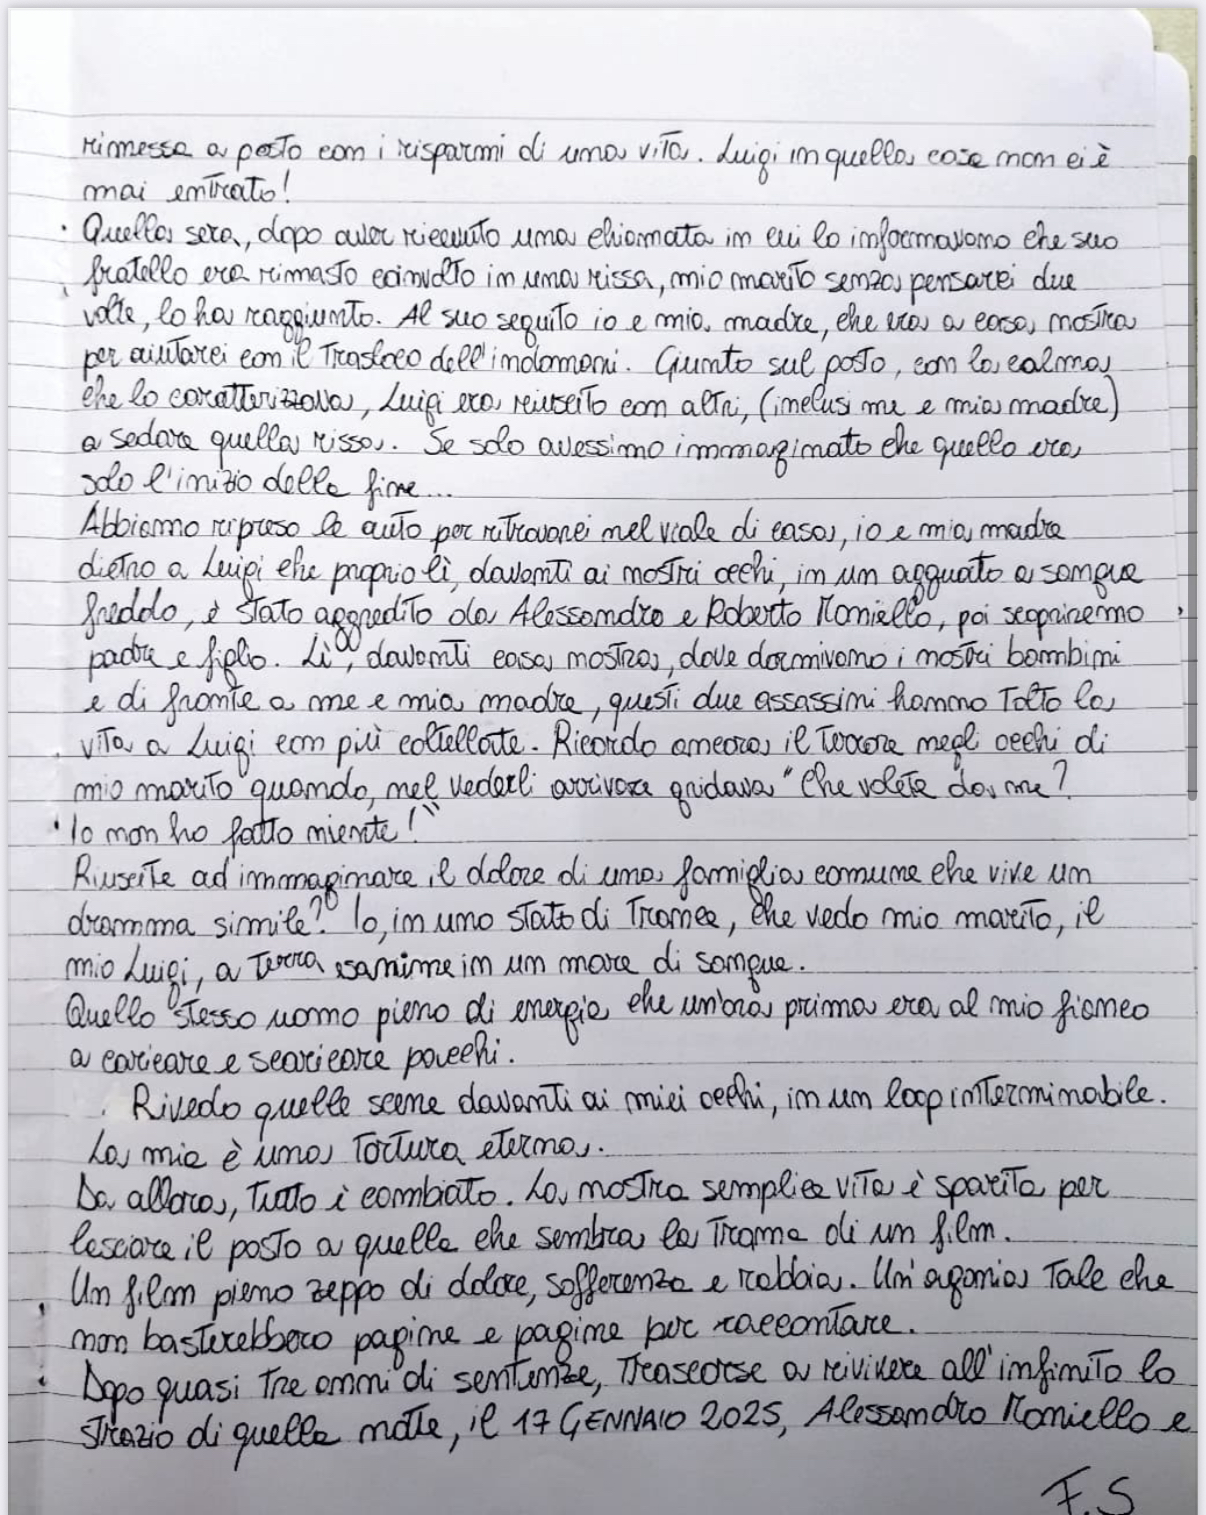 rimessa a posto con i risparmi di una vita. Luigi in quella casa non ci è
mai entrato!
Quella sera, dopo aver ricevuto una chiamata in cui lo informavano che suo
fratello era rimasto coinvolto in una rissa, mio marito senza pensarci due
volte, lo ha raggiunto. Al suo seguito io e mia madre, che era a casa nostra
per aiutarci con il trasloco dell'indomani. Giunto sul posto, con la calma
che lo caratterizzava, Luigi era riuscito con altri, (inclusi me e mia madre)
a sedare quella rissa. Se solo avessimo immaginato che quello era
solo l'inizio della fine...
Abbiamo ripreso le auto per ritrovarci nel viale di casa, io e mia madre
dietro a Luigi che proprio lì, davanti ai nostri occhi, in un agguato a sangue
freddo, è stato aggredito da Alessandro e Roberto Maniello, poi scopriremo
padre e figlio. Lì, davanti casa nostra, dove dormivano i nostri bambini
e di fronte a me e mia madre, questi due assassini hanno tolto la
vita a Luigi con più coltellate. Ricordo ancora il terrore negli occhi di
mio marito quando, nel vederli arrivare gridava "Che volete da me?
Io non ho fatto niente!"
Riuscite ad immaginare il dolore di una famiglia comune che vive un
dramma simile? Io, in uno stato di trance, che vedo mio marito, il
mio Luigi, a terra esanime in un mare di sangue.
Quello stesso uomo pieno di energia che un'ora prima era al mio fianco
a caricare e scaricare pacchi.
Rivedo quelle scene davanti ai miei occhi, in un loop interminabile.
La mia è una tortura eterna.
Da allora, tutto è cambiato. La nostra semplice vita è sparita per
lasciare il posto a quella che sembra la trama di un film.
Un film pieno zeppo di dolore, sofferenza e rabbia. Un'agonia tale che
non basterebbero pagine e pagine per raccontare.
Dopo quasi tre anni di sentenze, trascorse a rivivere all'infinito lo
strazio di quella notte, il 17 GENNAIO 2025, Alessandro Maniello e
F.S